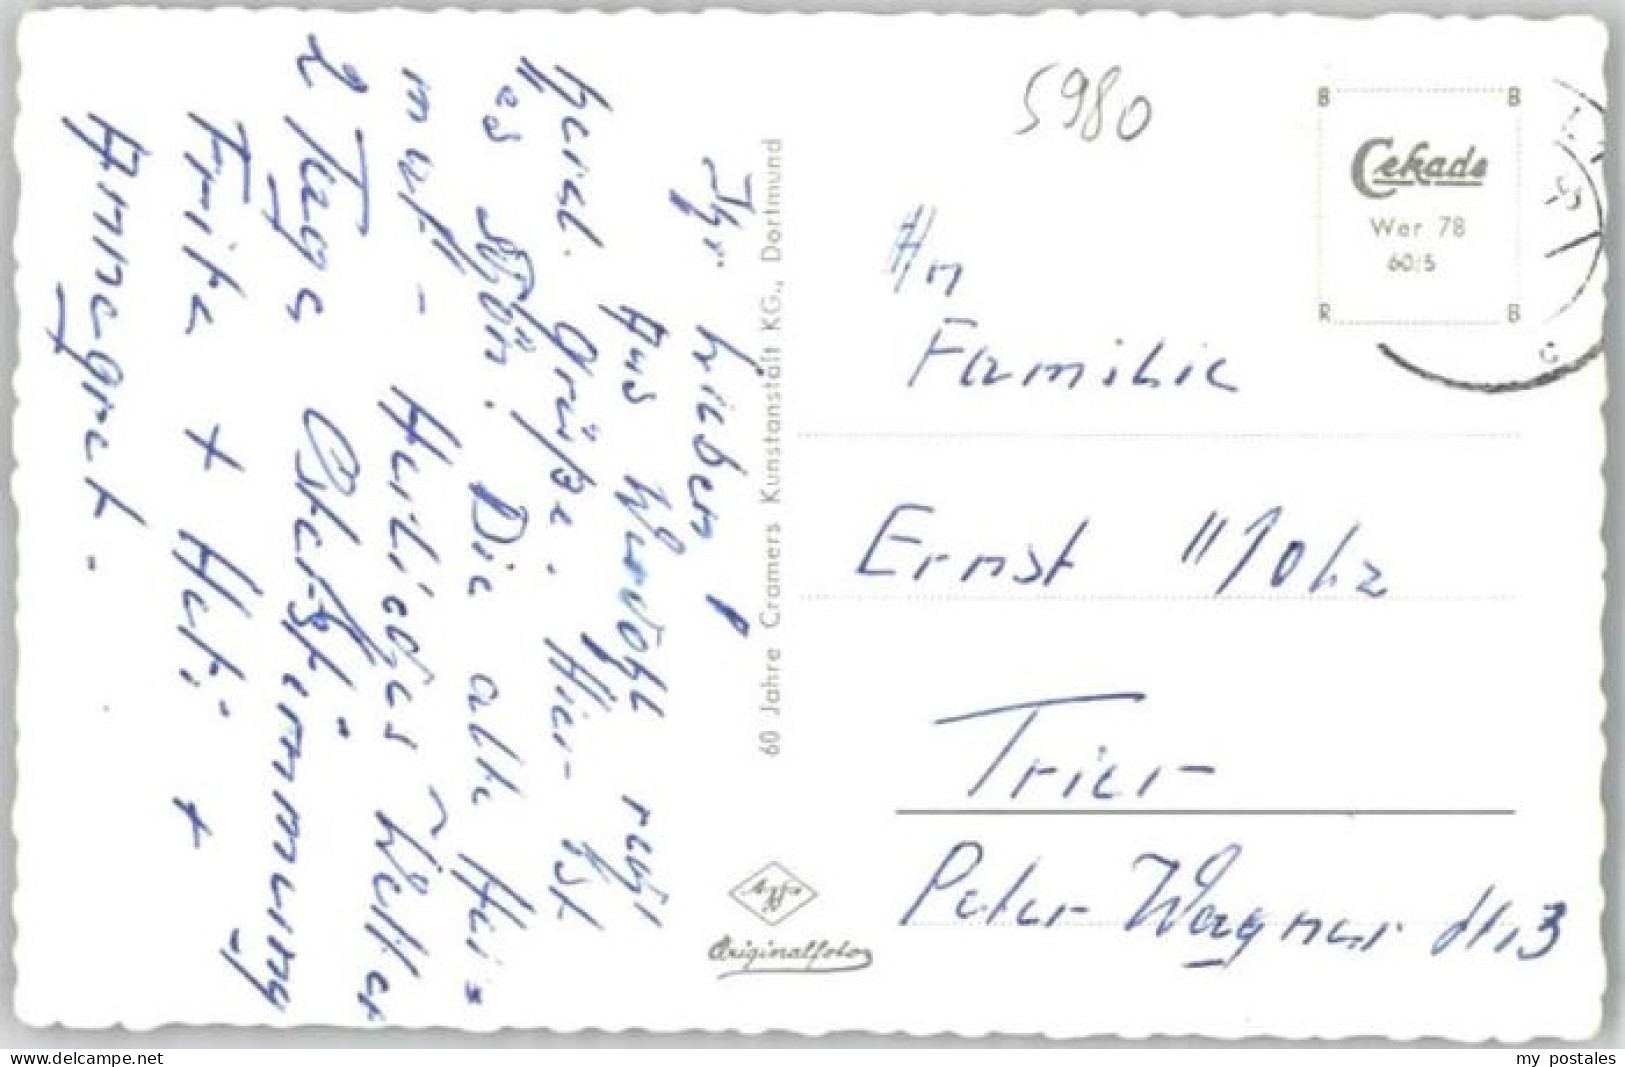 Ihr Lieben!
Aus Werdohl recht
herzl. Grüße. Hier ist
es schön. Die alte Hei-
mat - Herrliches Wetter
2 Tage Osterstimmung
Frita + Heti +
Annegret.
60 Jahre Cramers Kunstanstalt KG., Dortmund
Agfa
Originalfoto
5980
B B
Cekade
Wer 78
60/5
R B
An
Familie
Ernst
Trier
Peter-Wagner
3
delcampe.com
my postales